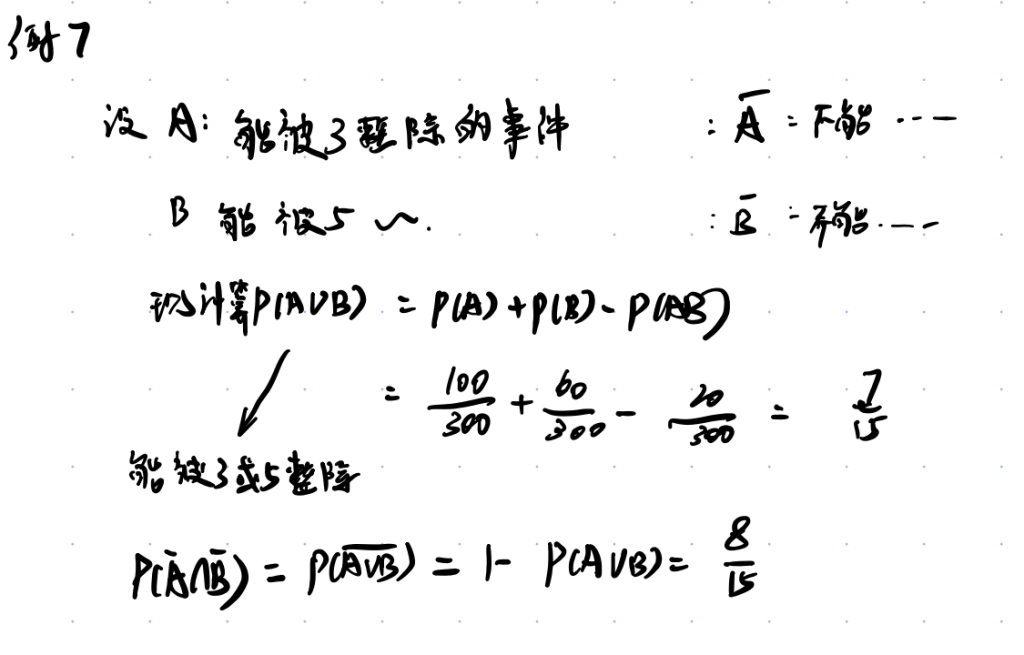 例7
设 A: 能被3整除的事件 : A̅ : 不能 ……
B 能被5 ~. : B̅ : 不能 ……
现计算P(A∪B) = P(A)+P(B)-P(AB)
= 100/300 + 60/300 - 20/300 = 7/15
能被3或5整除
P(A̅∩B̅) = P(A̅∪̅B̅) = 1- P(A∪B)= 8/15